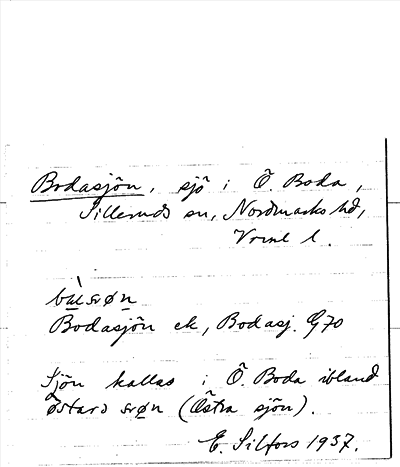 Bodasjön, sjö i Ö. Boda,
Silleruds sn, Nordmarks hd,
Vrml l.
Bodasjön ek, Bodasj. G70
Sjön kallas i Ö. Boda ibland
østarɔ srøn (Östra sjön).
E. Silfors 1937.